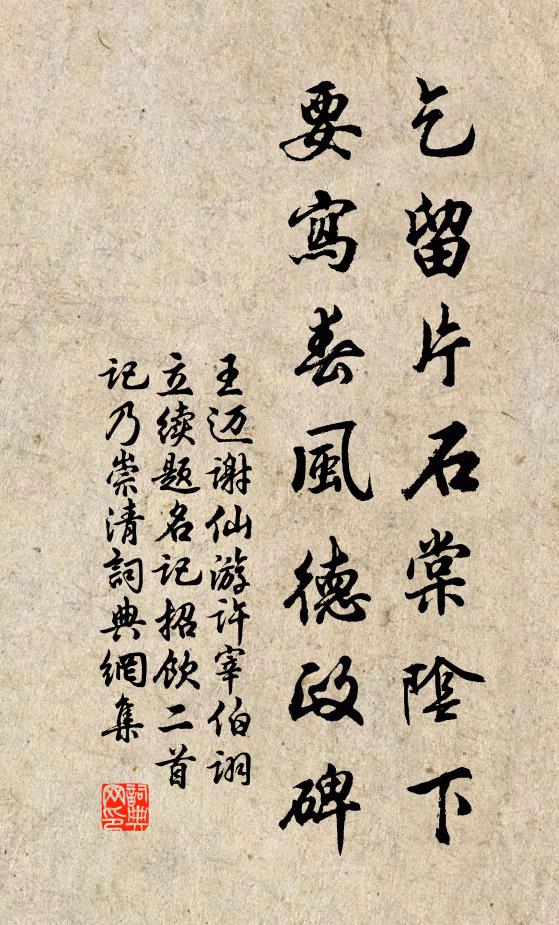 乞留片石棠陰下
要寫春風德政碑
王迈謝仙游許宰伯詡
立续題名记招飲二首
记乃崇清詞典網集
詞典网印